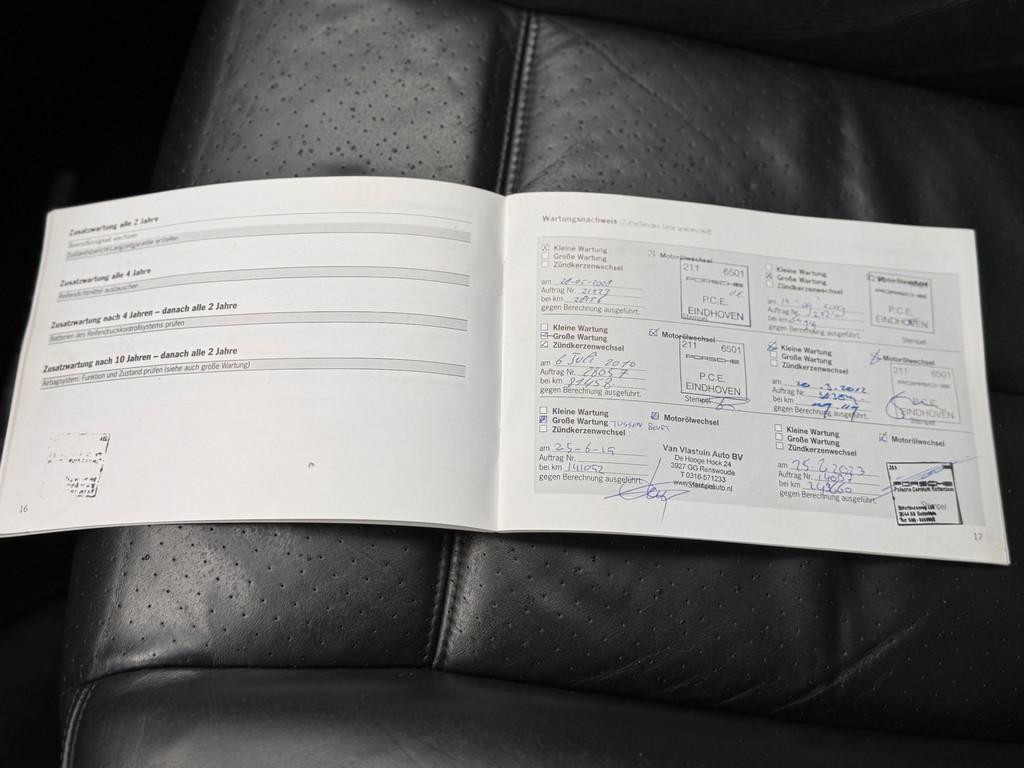 Zusatzwartung alle 2 Jahre
Bremsflüssigkeit wechseln
Zustandsbericht Langzeitgarantie erstellen
Zusatzwartung alle 4 Jahre
Reifendichtmittel austauschen
Zusatzwartung nach 4 Jahren – danach alle 2 Jahre
Batterien des Reifendruckkontrollsystems prüfen
Zusatzwartung nach 10 Jahren – danach alle 2 Jahre
Airbagsystem: Funktion und Zustand prüfen (siehe auch große Wartung)
16
Wartungsnachweis (Zutreffendes bitte ankreuzen)
Kleine Wartung
Motorölwechsel
Große Wartung
Zündkerzenwechsel
211 6501
PORSCHE
P.C.E.
EINDHOVEN
Stempel
am
Auftrag Nr.
bei km
gegen Berechnung ausgeführt.
Kleine Wartung
Motorölwechsel
Große Wartung
Zündkerzenwechsel
PORSCHE
P.C.E.
EINDHOVEN
Stempel
am
Auftrag Nr.
bei km
gegen Berechnung ausgeführt.
Kleine Wartung
Motorölwechsel
Große Wartung
Zündkerzenwechsel
211 6501
PORSCHE
P.C.E.
EINDHOVEN
Stempel
am 6 Juli 2010
Auftrag Nr. 28057
bei km 91458
gegen Berechnung ausgeführt.
Kleine Wartung
Motorölwechsel
Große Wartung
Zündkerzenwechsel
211 6501
PORSCHE
P.C.E.
EINDHOVEN
Stempel
am 20.3.2012
Auftrag Nr.
bei km
gegen Berechnung ausgeführt.
Kleine Wartung
Motorölwechsel
Große Wartung TUSSEN BEURT
Zündkerzenwechsel
Van Vlastuin Auto BV
De Hooge Hoek 24
3927 GG Renswoude
T 0318-571233
Stempel
am 25-6-19
Auftrag Nr.
bei km 141092
gegen Berechnung ausgeführt.
Kleine Wartung
Motorölwechsel
Große Wartung
Zündkerzenwechsel
PORSCHE
Porsche Centrum Rotterdam
Stempel
am 25.2.2023
Auftrag Nr. 14007
bei km 243660
gegen Berechnung ausgeführt.
17